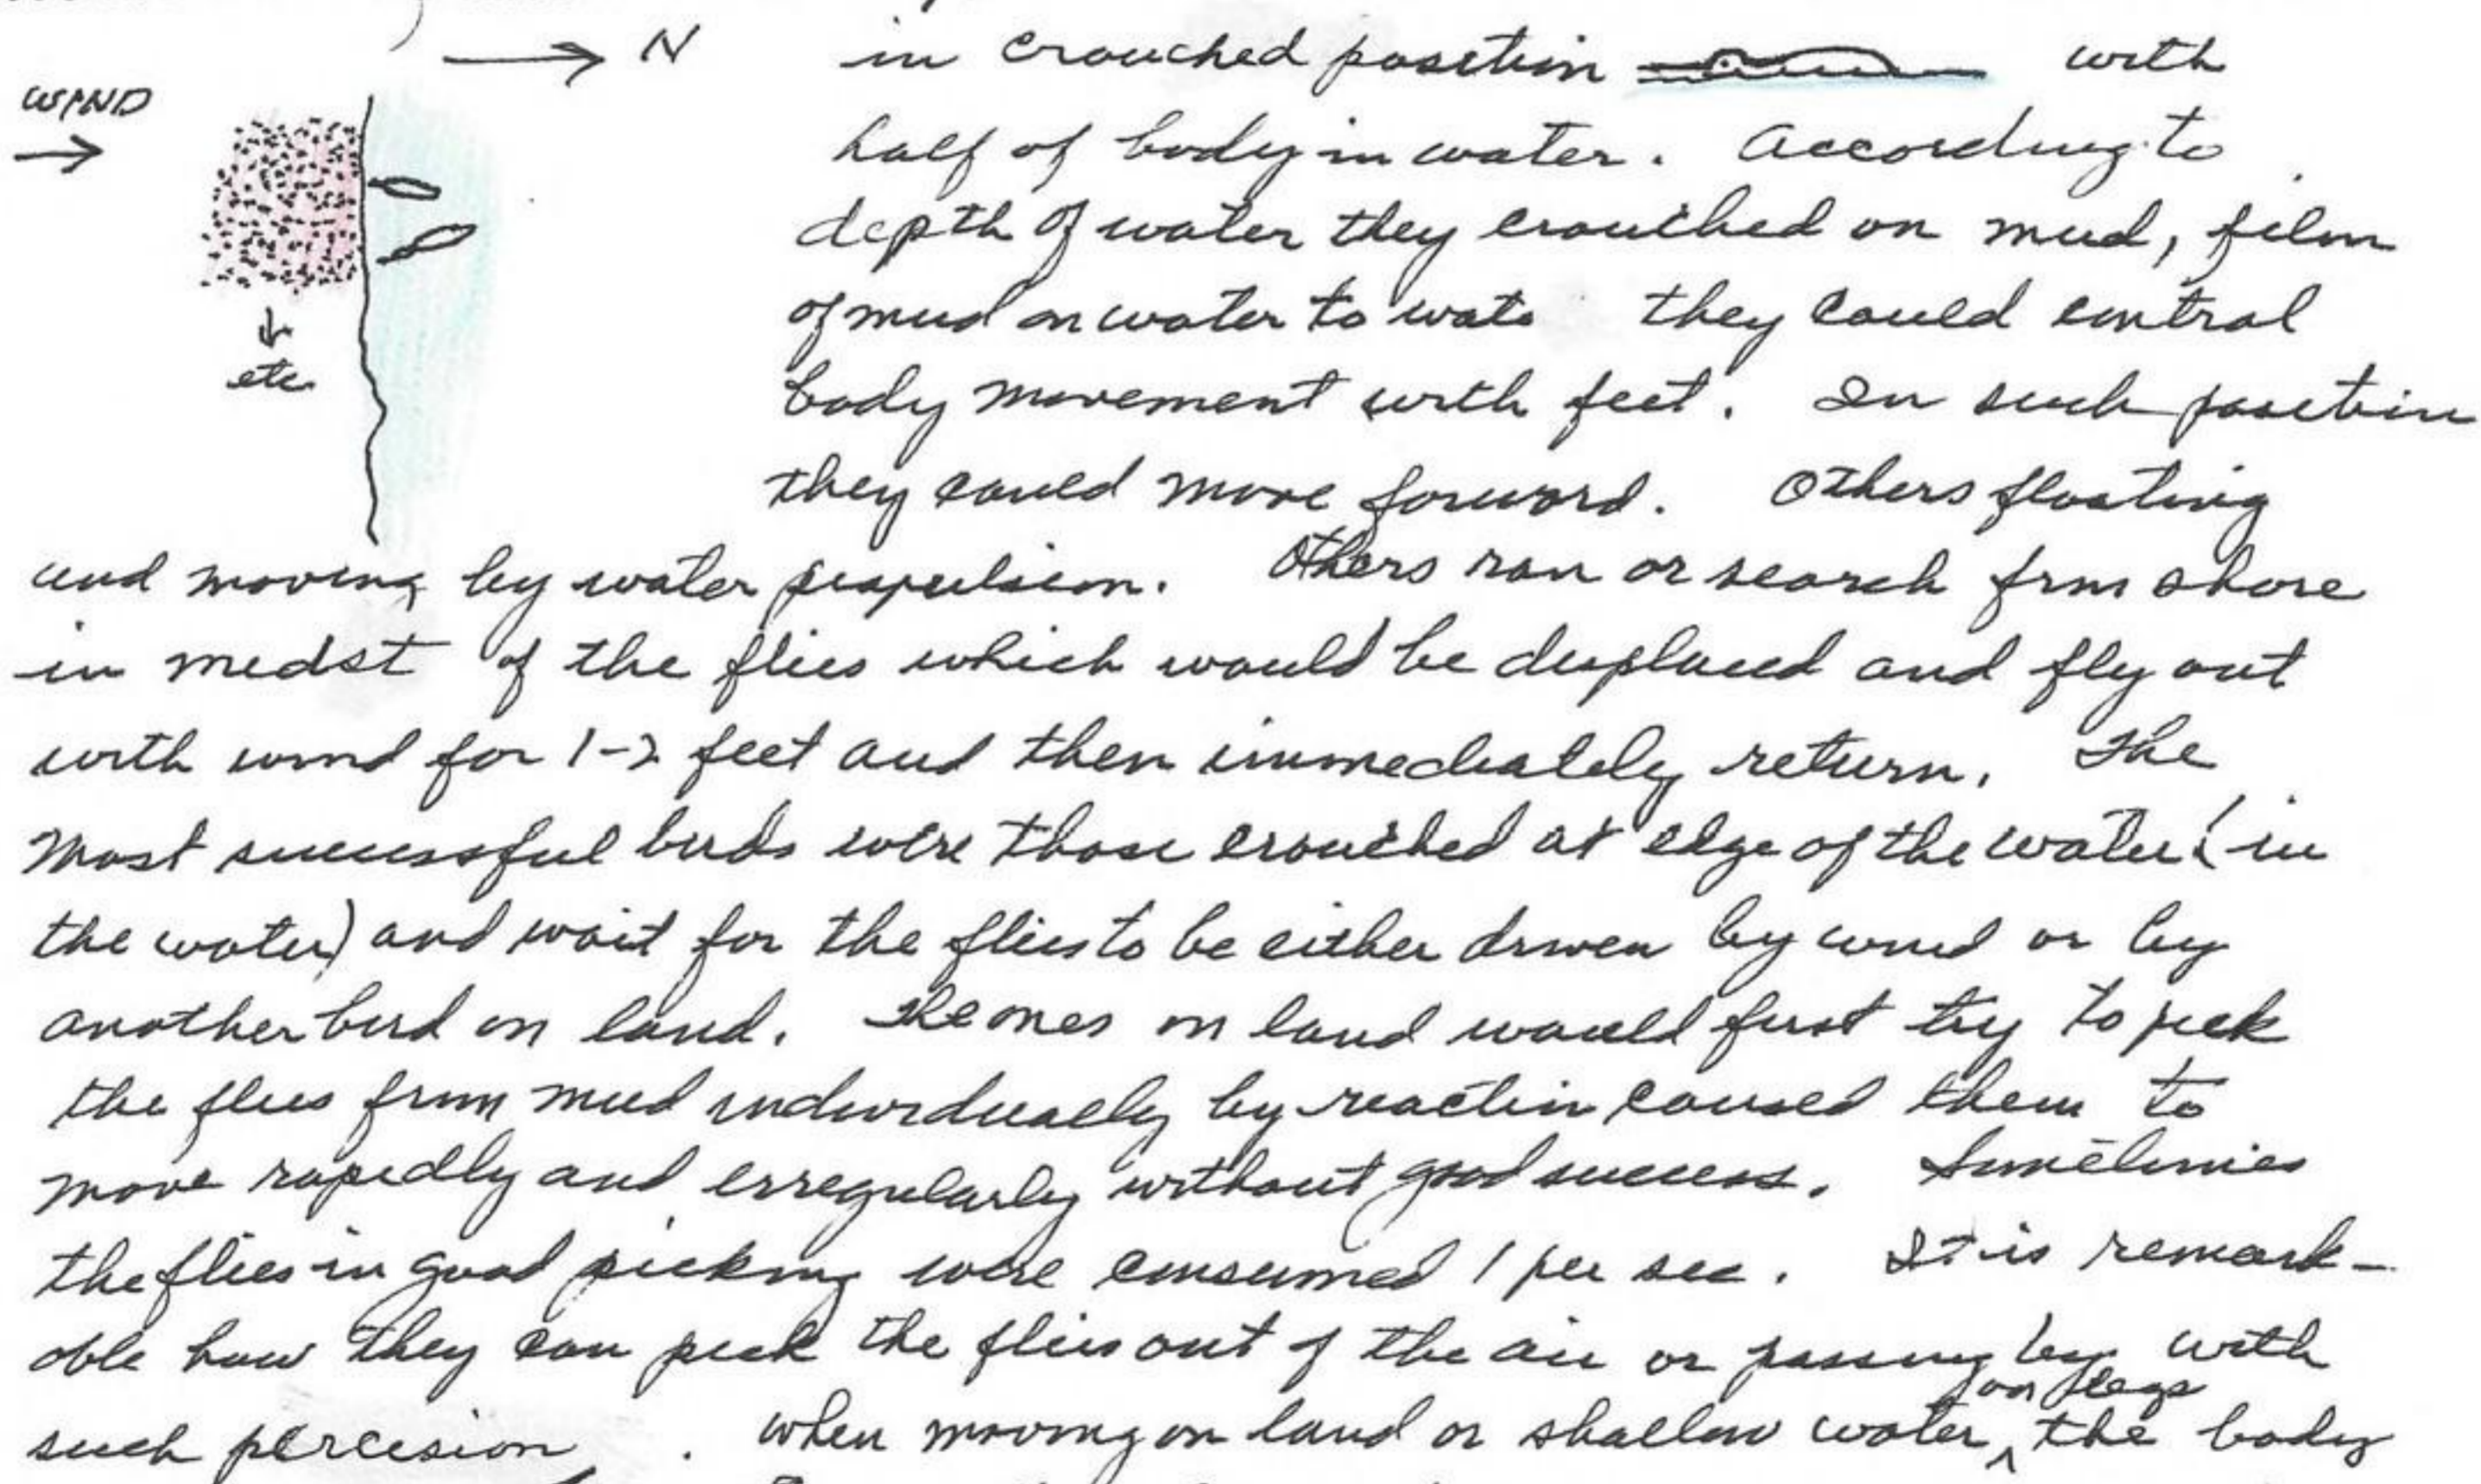 → N
WIND
→
↓
etc
in crouched position with
half of body in water. According to
depth of water they crouched on mud, film
of mud on water to wate they could control
body movement with feet. In such position
they could move forward. Others floating
and moving by water propulsion. Others ran or search from shore
in medst of the flies which would be displaced and fly out
with wind for 1-2 feet and then immediately return. The
most successful birds were those crouched at edge of the water (in
the water) and wait for the flies to be either driven by wind or by
another bird on land. The ones on land would first try to pick
the flies from mud individually by reaction caused them to
move rapidly and erregularly without good success. Sometimes
the flies in good picking were consumed 1 per sec. It is remark-
able how they can pick the flies out of the air or passing by with
such percesion. When moving on land or shallow water ^ on legs the body